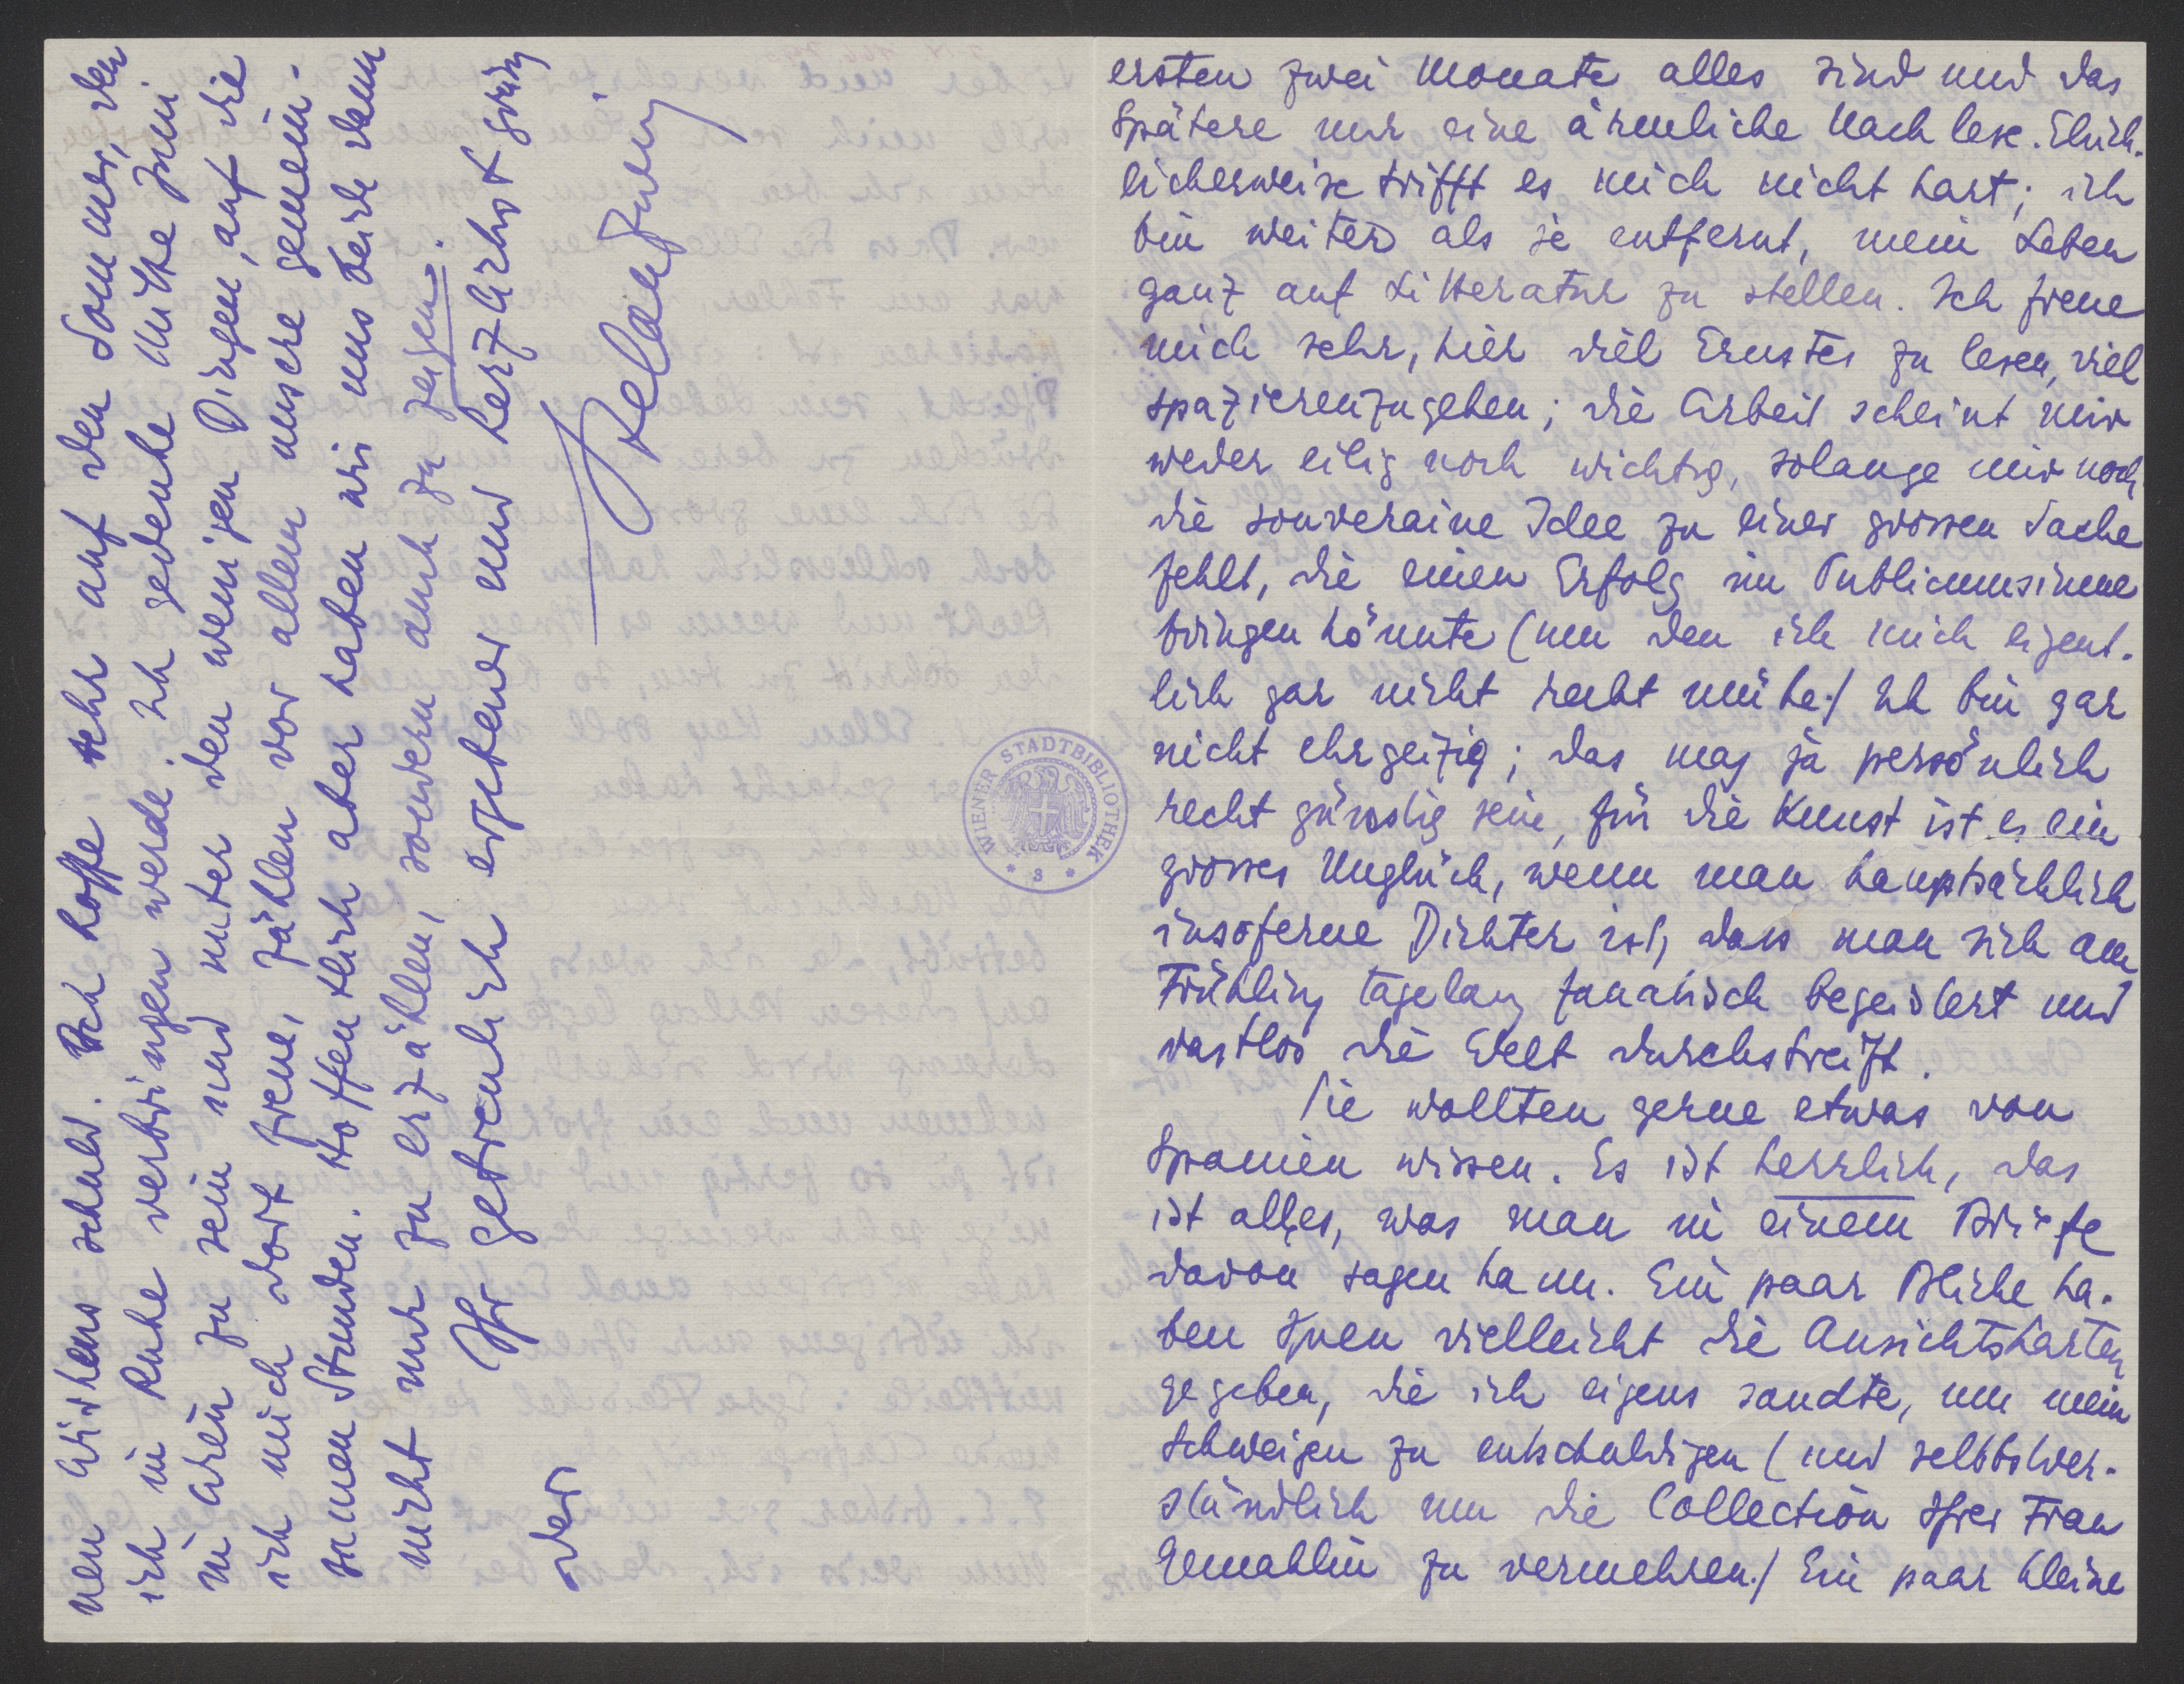 ersten zwei Monate alles sind und das
Spätere nur eine ärmliche Nachlese. Glück-
licherweise trifft es mich nicht hart; ich
bin weiter als je entfernt, mein Leben
ganz auf Litteratur zu stellen. Ich freue
mich sehr, hier viel Ernstes zu lesen, viel
spazierenzugehen; die Arbeit scheint mir
weder eilig noch wichtig, solange mir noch
die souveraine Idee zu einer grossen Sache
fehlt, die einen Erfolg im Publicumsinne
bringen könnte (um den ich mich eigent-
lich gar nicht recht mühe.) Ich bin gar
nicht ehrgeizig; das mag ja persönlich
recht günstig sein, für die Kunst ist es ein
grosses Unglück, wenn man hauptsächlich
insoferne Dichter ist, dass man sich am
Frühling tagelang fanatisch begeistert und
rastlos die Welt durchstreift.
Sie wollten gerne etwas von
Spanien wissen. Es ist herrlich, das
ist alles, was man in einem Briefe
davon sagen kann. Ein paar Blicke ha-
ben Ihnen vielleicht die Ansichtskarten
gegeben, die ich eigens sandte, um mein
Schweigen zu entschuldigen (und selbstver-
ständlich um die Collection Ihrer Frau
Gemahlin zu vermehren.) Ein paar kleine
nen Wissens schuld. Ich hoffe sehr auf den Sommer, den
ich in Ruhe verbringen werde. Ich gedenke Mitte Juni
in Wien zu sein und unter den wenigen Dingen, auf die
ich mich dort freue, zählen vor allem unsere gemein-
samen Stunden. Hoffentlich aber haben wir uns beide dann
nicht nur zu erzählen, sondern auch zu zeigen.
Ihr getreulich ergebener und herzlichst grüßen
der
StefanZweig
WIENER STADTBIBLIOTHEK * 3 *